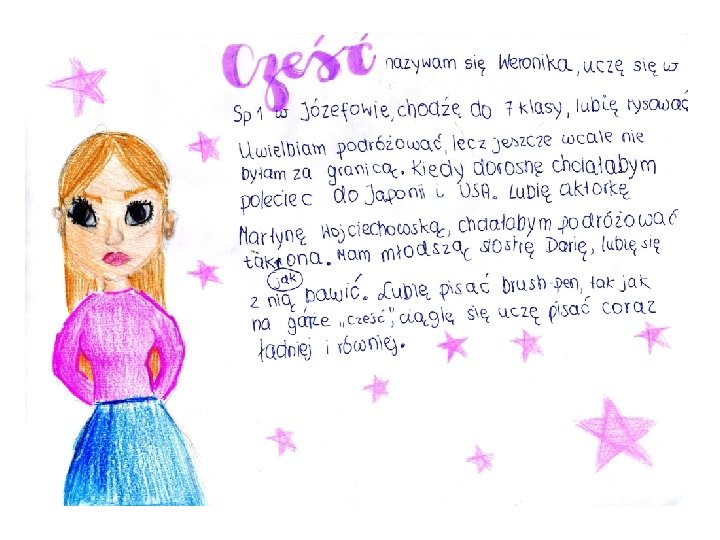 Cześć nazywam się Weronika, uczę się w
Sp 1 w Józefowie, chodzę do 7 klasy, lubię rysować
Uwielbiam podróżować, lecz jeszcze wcale nie
byłam za granicą. Kiedy dorosnę chciałabym
polecieć do Japonii i USA. Lubię aktorkę
Martynę Wojciechowską, chciałabym podróżować
tak ona. Mam młodszą siostrę Darię, lubię się
jak
z nią bawić. Lubię pisać brush-pen, tak jak
na górze "cześć", ciągle się uczę pisać coraz
ładniej i równiej.